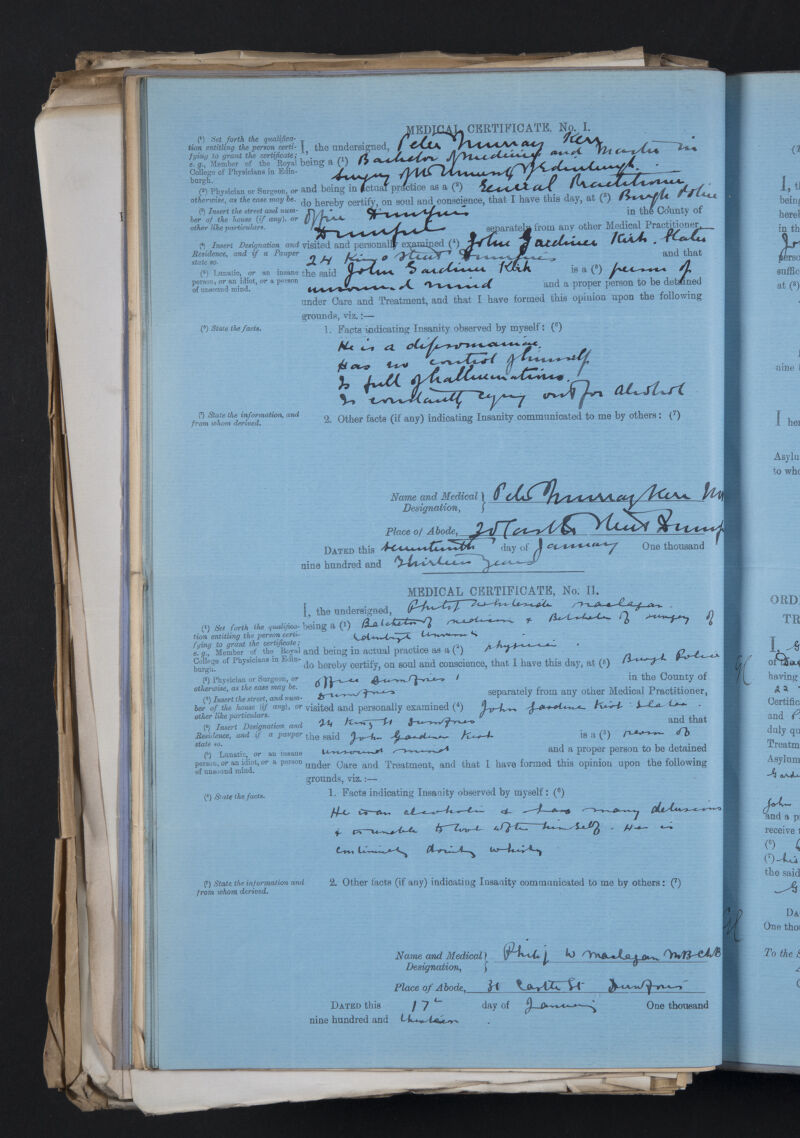 MEDICAL CERTIFICATE, No. I.
(¹) Set forth the qualifica-
tion entitling the person certi-
fying to grant the certificate;
e. g., Member of the Royal
College of Physicians in Edin-
burgh.
(²) Physician or Surgeon, or
otherwise, as the case may be.
(³) Insert the street and num-
ber of the house (if any), or
other like particulars.
(⁴) Insert Designation and
Residence, and if a Pauper
state so.
(⁵) Lunatic, or an insane
person, or an idiot, or a person
of unsound mind.
I, the undersigned, Peter Murray Kerr
being a (¹) Bachelor of medicine and Master in
Surgery of the University of Edinburgh.
and being in actual practice as a (²) General Practitioner
do hereby certify, on soul and conscience, that I have this day, at (³) Burgh Police
Office Dumfries in the County of
Dumfries separately from any other Medical Practitioner,
visited and personally examined (⁴) John Gardiner Kirk. Slater
24 King Street Dumfries and that
the said John Gardiner Kirk is a (⁵) person of
unsound mind and a proper person to be detained
under Care and Treatment, and that I have formed this opinion upon the following
grounds, viz.:—
(⁶) State the facts.
1. Facts indicating Insanity observed by myself: (⁶)
He is a dipsomaniac.
Has no control of himself
Is full of hallucinations.
Is constantly crying out for Alcohol
(⁷) State the information, and
from whom derived.
2. Other facts (if any) indicating Insanity communicated to me by others: (⁷)
Name and Medical Designation, Peter Murray Kerr
Place of Abode, Castle Street
DATED this seventeenth day of January One thousand
nine hundred and Thirteen years
MEDICAL CERTIFICATE, No. II.
(¹) Set forth the qualifica-
tion entitling the person certi-
fying to grant the certificate;
e. g., Member of the Royal
College of Physicians in Edin-
burgh.
(²) Physician or Surgeon, or
otherwise, as the case may be.
(³) Insert the street, and num-
ber of the house (if any), or
other like particulars.
(⁴) Insert Designation and
Residence, and if a pauper
state so.
(⁵) Lunatic, or an insane
person, or an idiot, or a person
of unsound mind.
I, the undersigned, Philip Whiteside Maclagan.
being a (¹) Batchelor of medicine & Batchelor of surgery of
Edinburgh University
and being in actual practice as a (²) physician.
do hereby certify, on soul and conscience, that I have this day, at (³) Burgh Police
office Dumfries in the County of
Dumfries separately from any other Medical Practitioner,
visited and personally examined (⁴) John Gardiner Kirk Slater.
24 King St Dumfries and that
the said John Gardiner Kirk is a (⁵) person of
unsound mind and a proper person to be detained
under Care and Treatment, and that I have formed this opinion upon the following
grounds, viz.:—
(⁶) State the facts.
1. Facts indicating Insanity observed by myself: (⁶)
He is an alcoholic & has many delusions
& is unable to look after himself. He is
continually drinking whisky
(⁷) State the information and
from whom derived.
2. Other facts (if any) indicating Insanity communicated to me by others: (⁷)
Name and Medical Designation, Philip W Maclagan MB ChB
Place of Abode, Castle St Dumfries
DATED this 17th day of January One thousand
nine hundred and thirteen